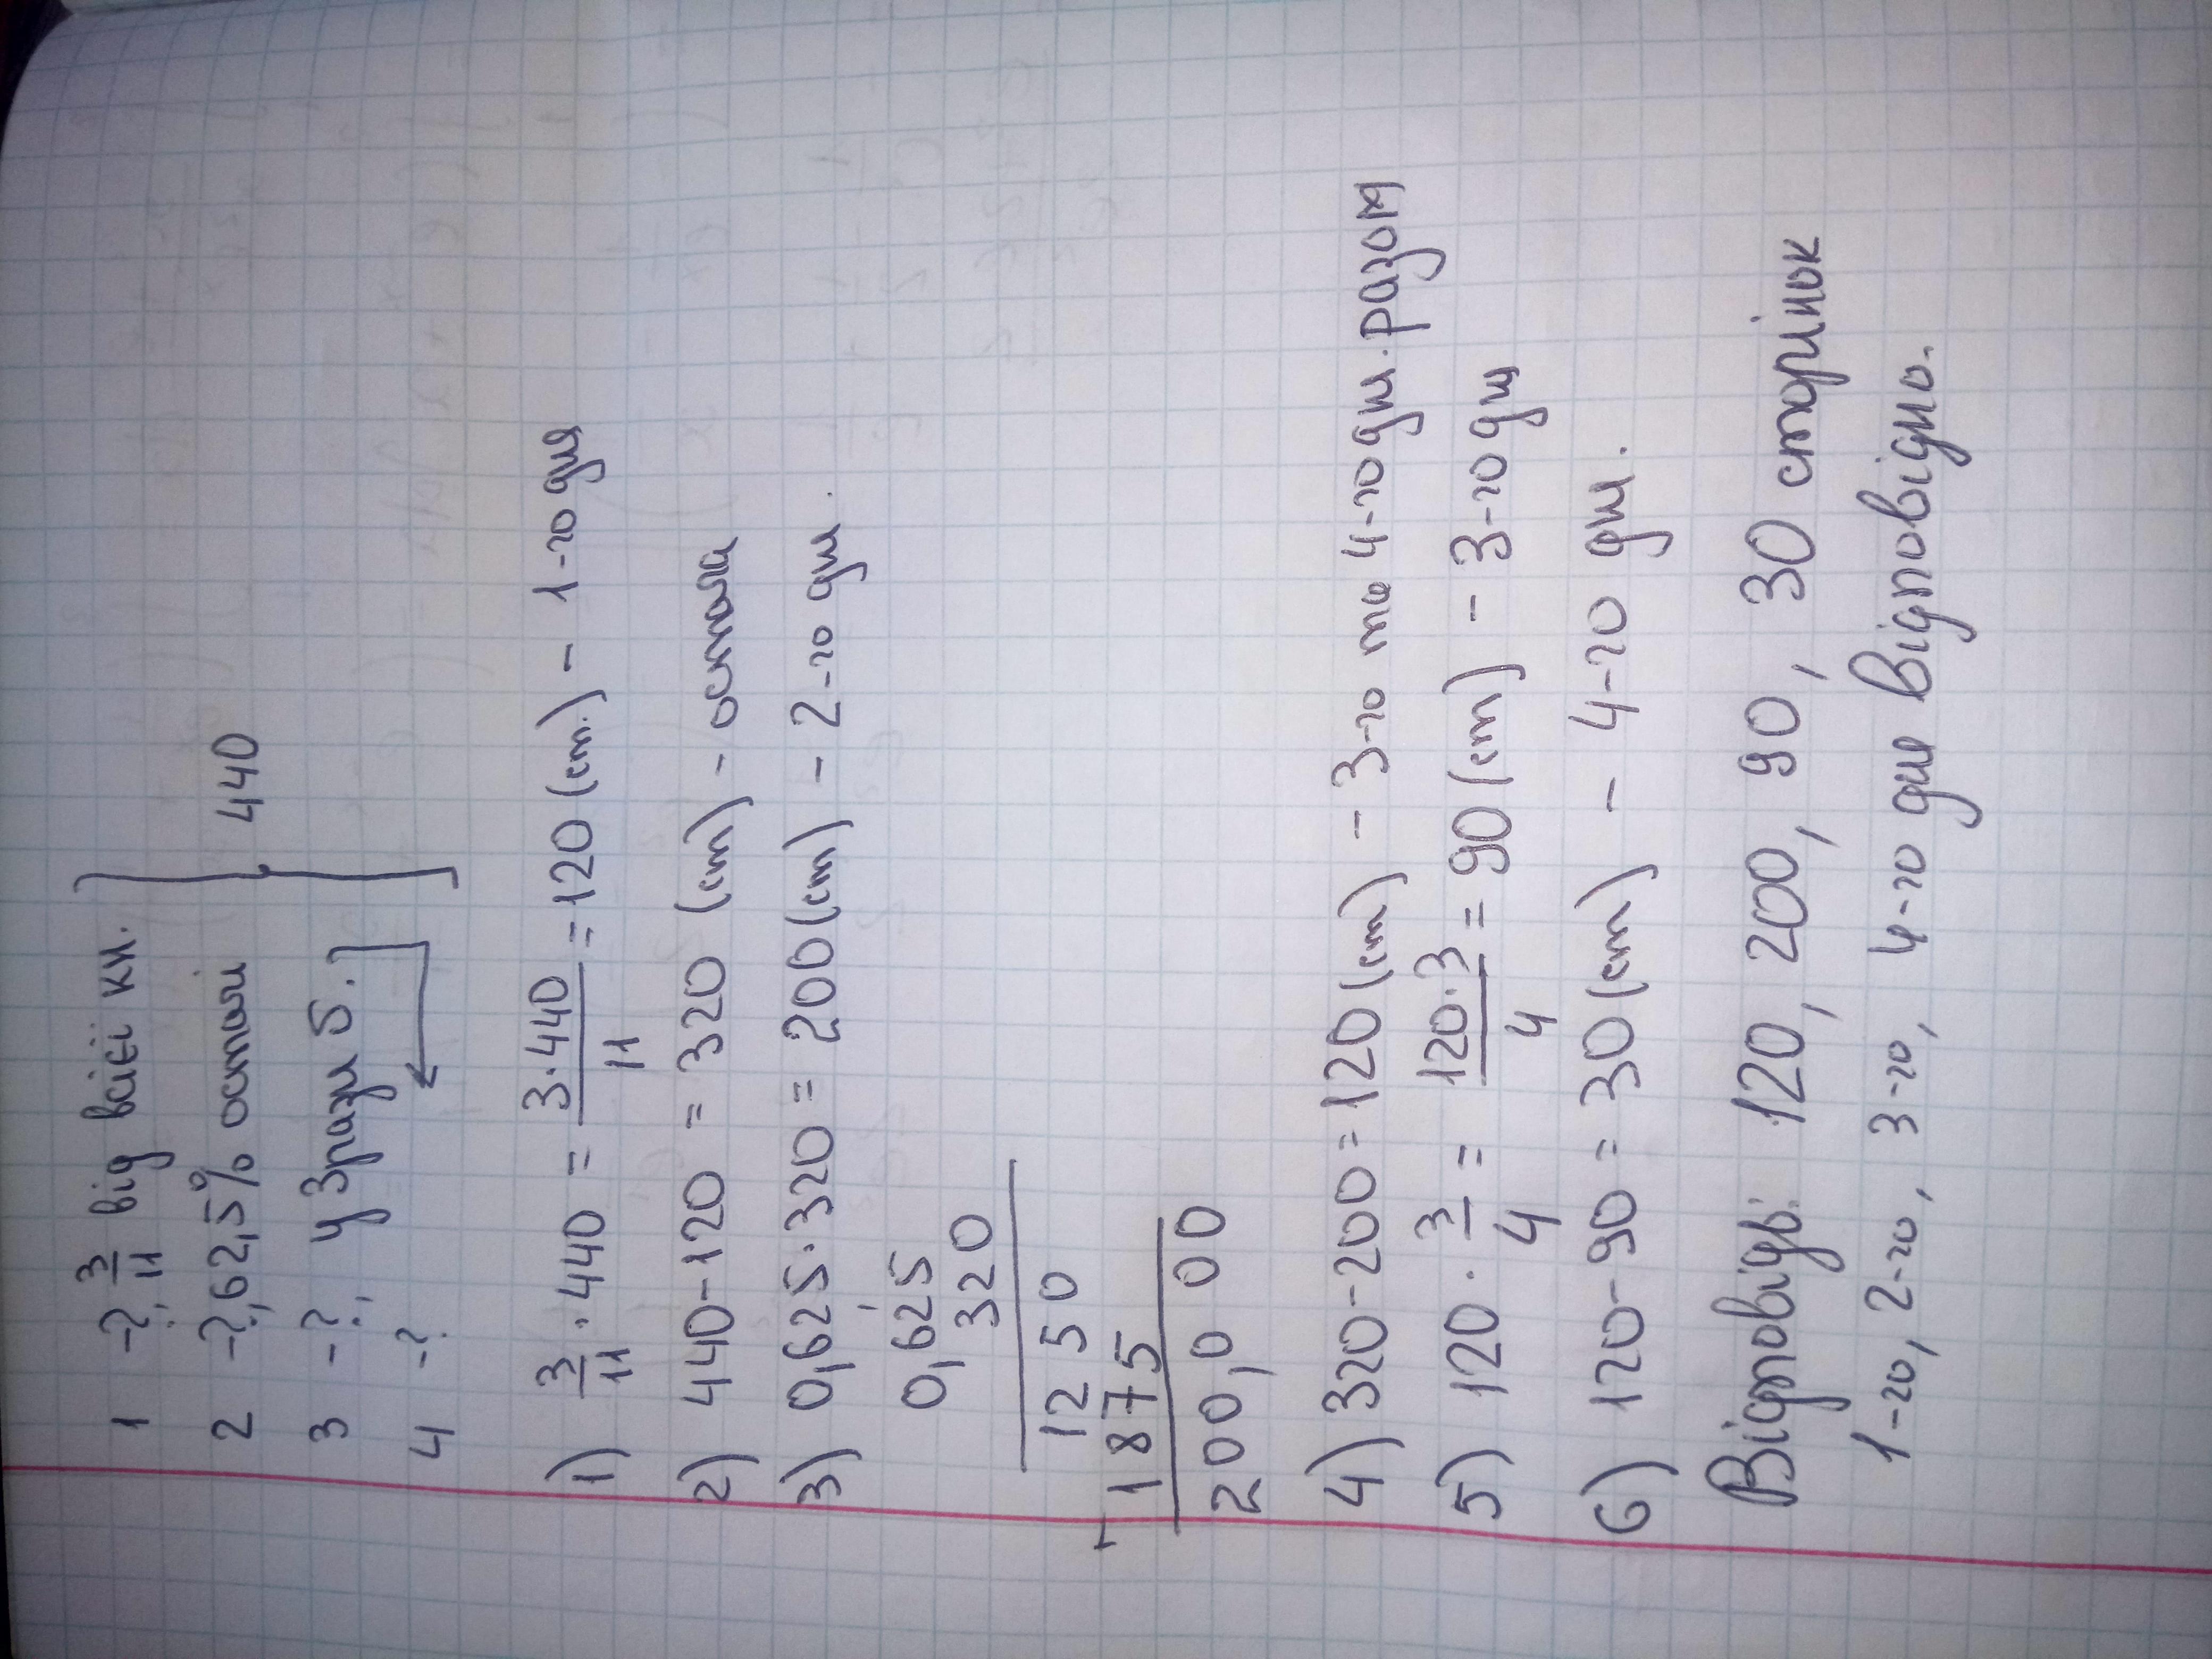 1 -?, 3/11 від всієї кн.
2 -?, 62,5% остачі
3 -?, у 3 рази б.
4 -?
440
1) 3/11 · 440 = 3·440/11 = 120 (ст.) - 1-го дня
2) 440-120 = 320 (ст) - остача
3) 0,625·320 = 200 (ст) - 2-го дня.
0,625
320
1250
+1875
200,000
4) 320-200=120 (ст) - 3-го та 4-го дня. разом
5) 120 · 3/4 = 120·3/4 = 90 (ст) - 3-го дня
6) 120-90 = 30 (ст) - 4-го дня.
Відповідь: 120, 200, 90, 30 сторінок
1-го, 2-го, 3-го, 4-го дня відповідно.